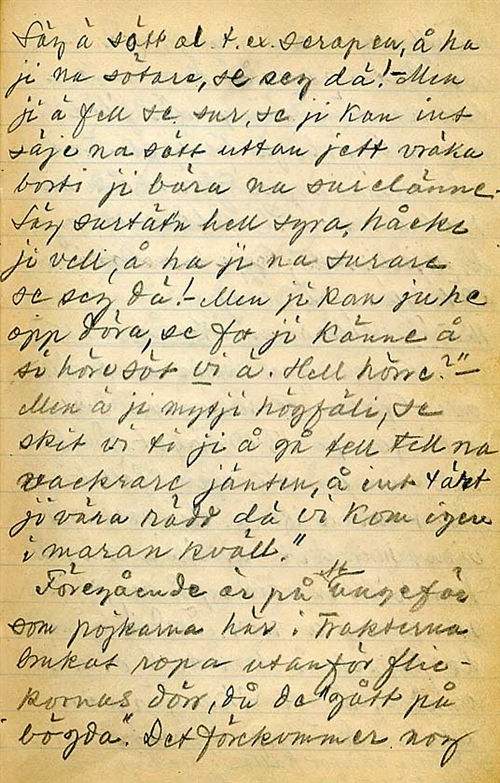 Säg å sött ol. t.ex. scrapen, å ha
ji na sötare, se seg då! - Men
ji ä fell se sur, se ji kan int
säje na sött uttan jett vräka
borti ji bära na surelänne.
Säg surtät'n hell syra, håcke
ji vell, å ha ji na surare
se seg då! - Men ji kan ju he
opp döra, se for ji känne å
si höre söt vi ä. Hell hörre?" -
Men ä ji mytji högfäli, se
skit vi ti ji å gå fell tell na
vackrare jänten, å int tärt
ji våra rädd då vi kom igen
i maran kväll."
Föregående är på ett ungefär
som pojkarna här i Trakterna
brukat ropa utanför flic-
kornas dörr, då de "gått på
bögda". Det förekommer nog